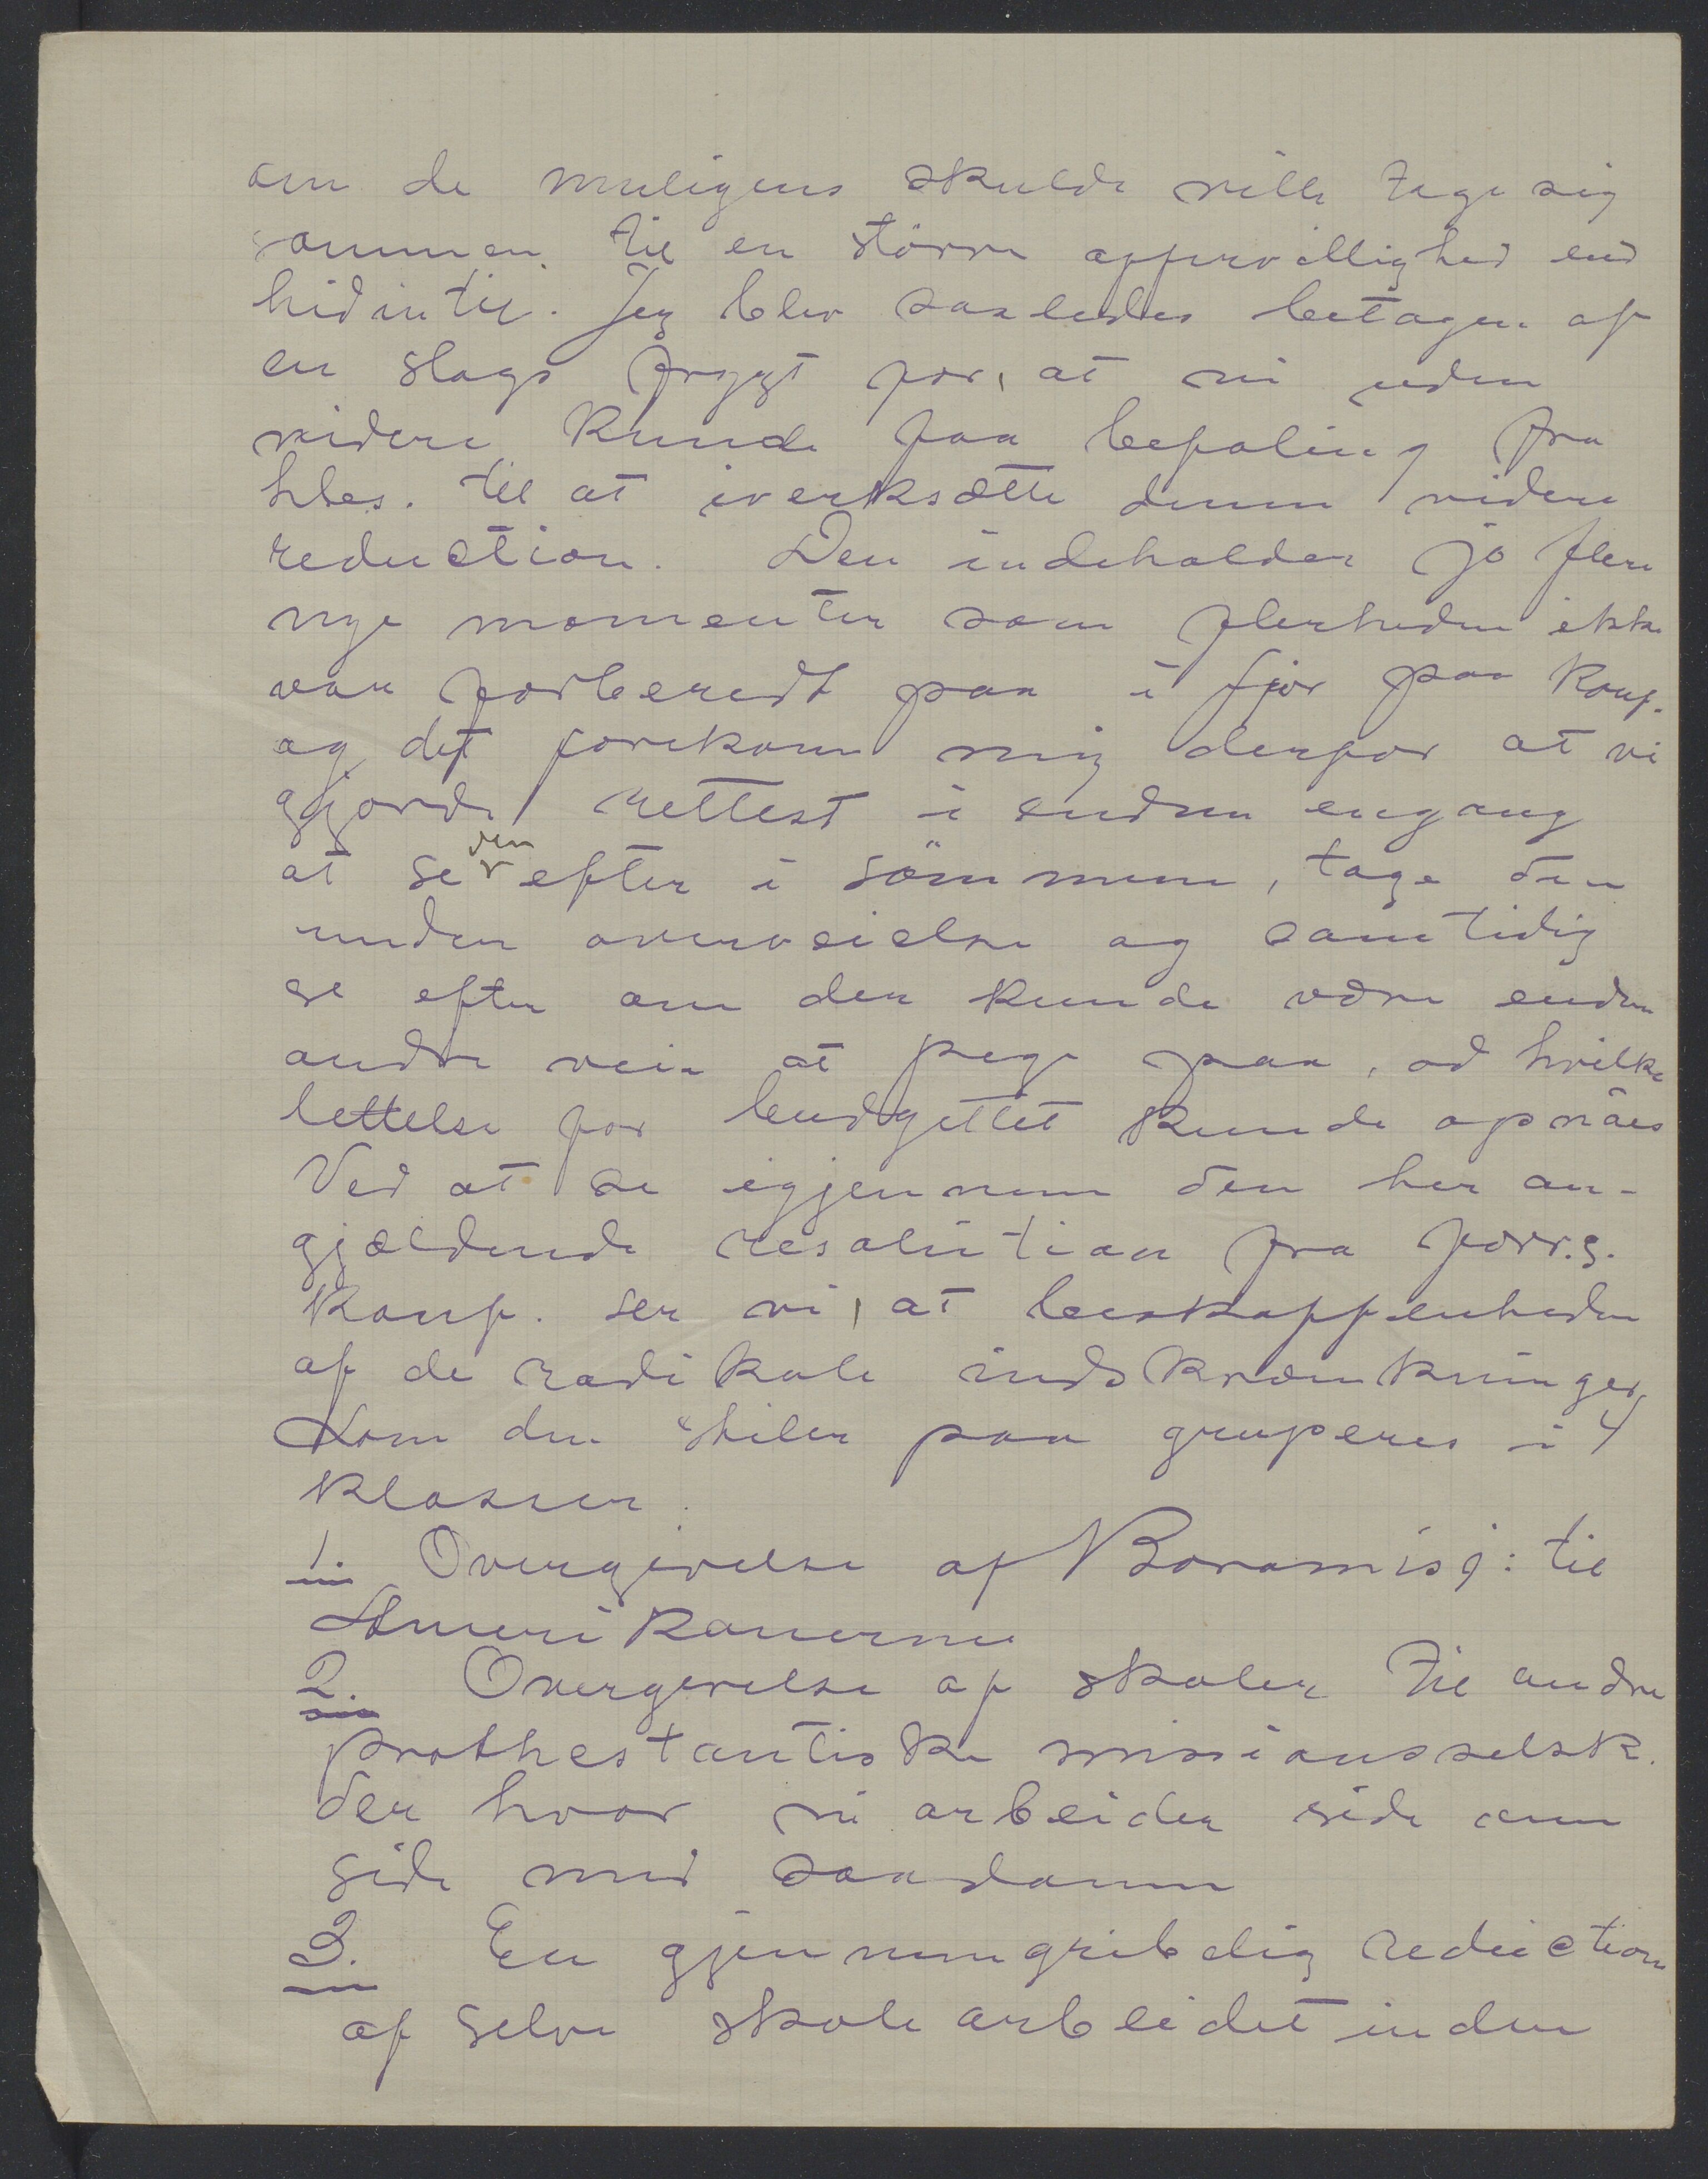 om de muligens skulde ville tage sig
sammen til en större offervillighed end
hidintil. Jeg blev saaledes betagen af
en slags frygt for, at vi uden
videre kunde faa befaling fra
hbes. til at iverksætte denne videre
reduction. Den indeholder jo flere
nye momenter som flerheden ikke
var forberedt paa i fjor paa konf.
og det forekom mig derfor at vi
gjorde rettest i endnu engang
at se den efter i sömmene, tage den
under overveielse og samtidig
se efter om der kunde være endnu
andre veie at pege paa, ad hvilke
lettelse for budgettet kunde opnåes
Ved at se igjennem den her an-
gjældende resolution fra forr.g.
konf. ser vi, at beskaffenheden
af de radikale indskrænkninger,
som den stiler paa gruperes i 4
klasser.
1. Overgivelse af Boramisj: til
Amerikanerne
2. Overgivelse af skoler til andre
prothestantiske missionsselsk.
der hvor vi arbeider side om
side med saadanne
3. En gjennemgribdig reduction
af selve skole arbeidet inden